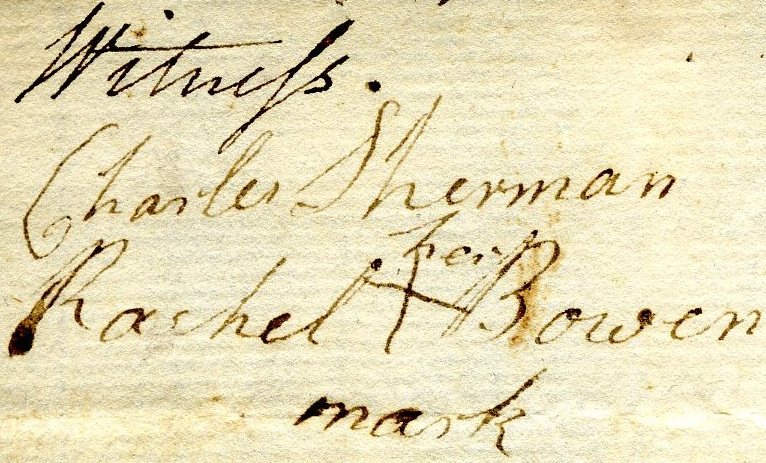 Witneſs.
Charles Sherman
her
Rachel X Bowen
mark